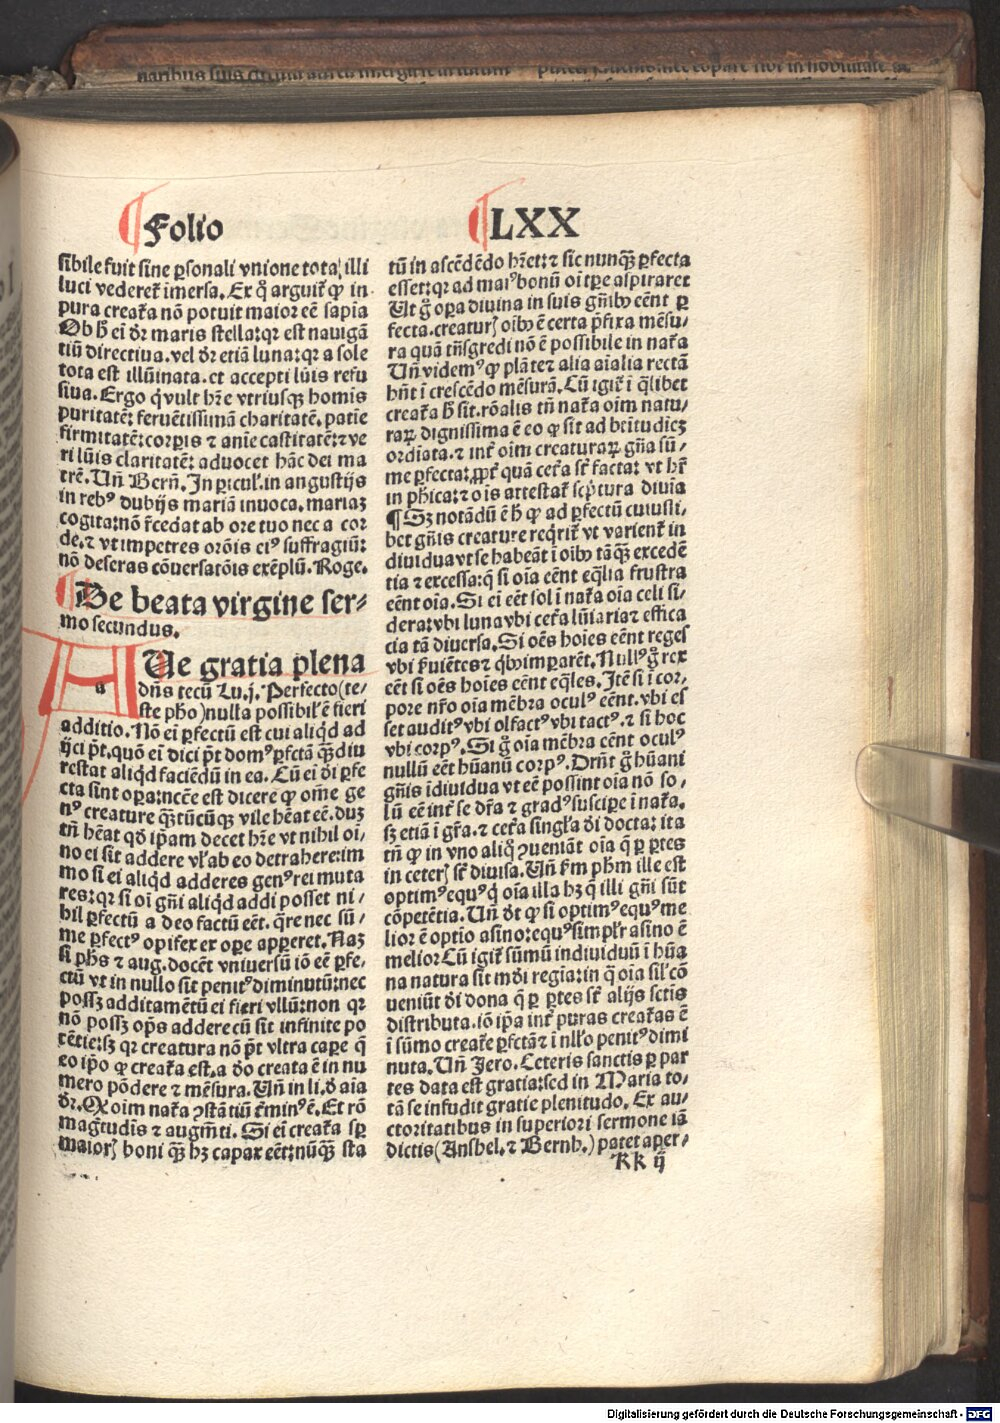 Folio LXX
sibile fuit sine ꝑsonali vnione tota illi
luci vederet᷑ imersa. Ex q̊ arguit᷑ ꝙ in
pura creat᷑a nō potuit maior eē sapīa
Ob ħ ei d᷑r maris stella: qꝛ est nauigā
tiū directiua. vel d᷑r etiā luna: qꝛ a sole
tota est illūinata. et accepti lūis refu
siua. Ergo q̄ vult hr̄e vtriusqꝫ homis
puritatē: feruētissimā charitatē. patie
firmitatē: corpis ⁊ anie castitatē: ⁊ ve
ri lūis claritatē: aduocet hāc dei ma
trē. Vn̄ Bern̄. In ꝑicul'. in angustijs
in rebꝰ dubijs mariā inuoca. mariaꝫ
cogita: nō r̄cedat ab ore tuo nec a cor
de. ⁊ vt impetres orōis eiꝰ suffragiū:
nō deseras cōuersatōis exēplū. Roge.
De beata virgine ser⸗
mo secundus.
AUe gratia plena
a
dn̄s tecū Lu. j. Perfecto (te⸗
ste pho) nulla possibil' ē fieri
additio. Nō ei ꝑfectū est cui aliqd ad
ijci pt̄. quō ei dici pt̄ domꝰ ꝑfctā qꝫ̄ diu
restat aliqd faciēdū in ea. Cū ei di ꝑfe
cta sint opa: ncēe est dicere ꝙ om̄e ge
nꝰ creature qꝫ̄tūcūqꝫ vile hēat eē. duꝫ
tn̄ hēat qd̄ ip̄am decet hr̄e vt nihil oi⸗
no ei sit addere vl' ab eo detrahere: im
mo si ei aliqd adderes genꝰ rei muta
res: qꝛ si oi gn̄i aliqd addi posset ni⸗
hil ꝑfectū a deo factū eēt. q̄re nec sū⸗
me ꝑfectꝰ opifex ex ope appēret. Naꝫ
si phs ⁊ aug. docēt vniuersū iō eē ꝑfe⸗
ctū vt in nullo sit penitꝰ diminutū: nec
possꝫ additamētū ei fieri vllū: non qꝛ
nō possꝫ opꝭ addere cū sit infinite po
tētie: sꝫ qꝛ creatura nō pt̄ vltra cape q̄
eo ip̄o ꝙ creat᷑a est. a d̄o creata ē in nu
mero pōdere ⁊ mēsura. Vn̄ in li. d̄ aīa
d᷑r. Qꝙ oim nat᷑a ꝯstātiū t᷑minꝰ ē. Et rō
magtudis ⁊ augmti. Si ei creat᷑a sꝑ
maioꝝ boni qꝫ̄ hꝫ capax eēt: nūqꝫ̄ sta
tū in ascēdēdo hr̄et: ⁊ sic nunqꝫ̄ ꝑfecta
esset: qꝛ ad maiꝰ bonū oi tꝑe aspiraret
Ut g̊ opa diuina in suis gn̄ibꝰ eēnt ꝑ
fecta. creaturꝭ oibꝰ ē certa p̄fixa mēsu⸗
ra quā trāsgredi nō ē possibile in nat᷑a
Vn̄ videmꝰ ꝙ plāte ⁊ alia aīalia rectā
hn̄t ī crescēdo mēsurā. Cū igit᷑ ī qlibet
creat᷑a ħ sit. rōalis tn̄ nat᷑a oim natu⸗
raꝝ dignissima ē eo ꝙ sit ad btitudieꝫ
ordiata. ⁊ int᷑ oim creaturaꝝ gn̄a sū⸗
me ꝑfecta: ꝓpt᷑ quā cet᷑a st̄ facta: vt hr̄
in phica: ⁊ ois attestat᷑ scptura diuia
¶ Sꝫ notādū ē ħ ꝙ ad ꝑfectū cuiusli⸗
bet gn̄is creature reqrit᷑ vt varient᷑ in
diuidua vt se habeāt ī oibꝰ tāqꝫ̄ excedē
tia ⁊ excessa: q̄ si oīa eēnt eqlia frustra
eēnt oīa. Si ei eēt sol ī nat᷑a oīa celi si⸗
dera: vbi luna vbi cet᷑a lūiaria ⁊ effica
cia tā diuersa. Si oēs hoies eēnt reges
vbi fuiētes ⁊ qbꝰ imparēt. Nullꝰ g̊ rex
eēt si oēs hoies eēnt eqles. Itē si ī cor⸗
pore nr̄o oīa mēbra oculꝰ eēnt. vbi es
set auditꝰ vbi olfactꝰ vbi tactꝰ. ⁊ si hoc
vbi corpꝰ. Si g̊ oīa mēbra eēnt oculꝰ
nullū eēt hūanū corpꝰ. Orn̄t g̊ hūani
gn̄is īdiuidua vt eē possint oīa nō so⸗
lū eē int᷑ se dr̄a ⁊ gradꝰ suscipe ī nat᷑a.
sꝫ etiā ī gr̄a. ⁊ cet᷑a singl'a di docta: ita
tn̄ ꝙ in vno aliqͦ ꝯueniāt oīa q̄ ꝑ ꝑtes
in ceterꝭ st̄ diuisa. Vn̄ f᷑m phm ille est
optimꝰ equꝰ q̄ oīa illa hꝫ q̄ illi gn̄i sūt
cōpetētia. Vn̄ d᷑t ꝙ si optimꝰ equꝰ me
lior ē optio asino: equꝰ simplr̄ asino ē
melior Cū igit᷑ sūmū indiuiduū ī hūa
na natura sit mdi regīa: in q̄ oīa sil' cō
ueniūt di dona q̄ ꝑ ꝑtes st̄ alijs sctīs
distributa. iō ip̄a int᷑ puras creat᷑as ē
ī sūmo creat᷑e ꝑfctā ⁊ ī nllo penitꝰ dimi
nuta. Vn̄ Jero. Ceteris sanctis ꝑ par
tes data est gratia: sed in Maria to⸗
tā se infudit gratie plenitudo. Ex au⸗
ctoritatibus in superiori sermone iā
dictis (Anshel. ⁊ Bernh.) patet aper⸗
kk ij
Digitalisierung gefördert durch die Deutsche Forschungsgemeinschaft - DFG